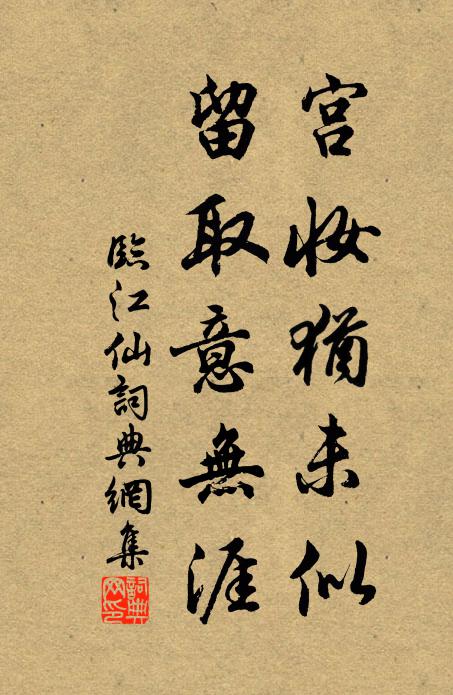 宮妝猶未似
留取意無涯
臨江仙詞典網集
詞典网印